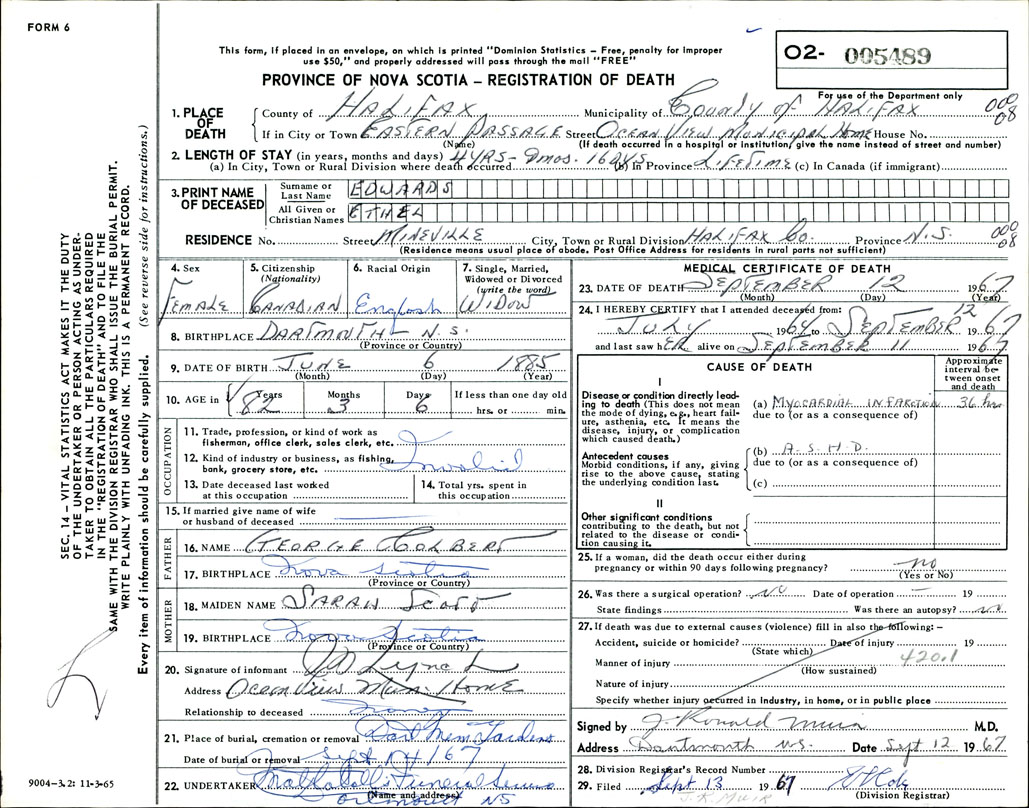 FORM 6
This form, if placed in an envelope, on which is printed "Dominion Statistics – Free, penalty for improper
use $50," and properly addressed will pass through the mail "FREE"
PROVINCE OF NOVA SCOTIA – REGISTRATION OF DEATH
O2- 005489
For use of the Department only
1. PLACE OF DEATH County of HALIFAX Municipality of County of HALIFAX 000 08
If in City or Town EASTERN PASSAGE Street OCEAN VIEW MUNICIPAL HOME House No.
(Name) (If death occurred in a hospital or institution, give the name instead of street and number)
2. LENGTH OF STAY (in years, months and days) 4YRS- 9mos. 16DYS LIFETIME
(a) In City, Town or Rural Division where death occurred (b) In Province (c) In Canada (if immigrant)
3. PRINT NAME OF DECEASED Surname or Last Name EDWARDS
All Given or Christian Names ETHEL
RESIDENCE No. Street MINEVILLE City, Town or Rural Division HALIFAX Co. Province N.S. 000 08
(Residence means usual place of abode. Post Office Address for residents in rural parts not sufficient)
SEC. 14 – VITAL STATISTICS ACT MAKES IT THE DUTY
OF THE UNDERTAKER OR PERSON ACTING AS UNDER-
TAKER TO OBTAIN ALL THE PARTICULARS REQUIRED
IN THE "REGISTRATION OF DEATH" AND TO FILE THE
SAME WITH THE DIVISION REGISTRAR WHO SHALL ISSUE THE BURIAL PERMIT.
WRITE PLAINLY WITH UNFADING INK. THIS IS A PERMANENT RECORD.
Every item of information should be carefully supplied. (See reverse side for instructions.)
4. Sex FEMALE
5. Citizenship (Nationality) CANADIAN
6. Racial Origin English
7. Single, Married, Widowed or Divorced (write the word) WIDOW
8. BIRTHPLACE DARTMOUTH – N.S.
(Province or Country)
9. DATE OF BIRTH JUNE 6 1885
(Month) (Day) (Year)
10. AGE in Years 82 Months 3 Days 6 If less than one day old
hrs. or min.
OCCUPATION
11. Trade, profession, or kind of work as
fisherman, office clerk, sales clerk, etc.
12. Kind of industry or business, as fishing,
bank, grocery store, etc. Invalid
13. Date deceased last worked
at this occupation
14. Total yrs. spent in
this occupation
15. If married give name of wife
or husband of deceased
FATHER
16. NAME GEORGE COLBERT
17. BIRTHPLACE Nova Scotia
(Province or Country)
MOTHER
18. MAIDEN NAME SARAH SCOTT
19. BIRTHPLACE Nova Scotia
(Province or Country)
20. Signature of informant
Address Ocean View Mun. Home
Relationship to deceased
21. Place of burial, cremation or removal Dart Mem Gardens
Date of burial or removal Sept 14/67
22. UNDERTAKER Funeral
(Name and address) Dartmouth NS
9004–3.2: 11-3-65
MEDICAL CERTIFICATE OF DEATH
23. DATE OF DEATH SEPTEMBER 12 1967
(Month) (Day) (Year)
24. I HEREBY CERTIFY that I attended deceased from:
JULY 1964 to SEPTEMBER 12 1967
and last saw hER alive on SEPTEMBER 11 1967
CAUSE OF DEATH
Approximate interval between onset and death
I
Disease or condition directly lead-
ing to death (This does not mean
the mode of dying, e.g., heart fail-
ure, asthenia, etc. It means the
disease, injury, or complication
which caused death.)
(a) MYOCARDIAL INFARCTION 36 hrs
due to (or as a consequence of)
Antecedent causes
Morbid conditions, if any, giving
rise to the above cause, stating
the underlying condition last.
(b) A.S.H.D.
due to (or as a consequence of)
(c)
II
Other significant conditions
contributing to the death, but not
related to the disease or condi-
tion causing it.
25. If a woman, did the death occur either during
pregnancy or within 90 days following pregnancy? no
(Yes or No)
26. Was there a surgical operation? NO Date of operation – 19
State findings Was there an autopsy? NO
27. If death was due to external causes (violence) fill in also the following: –
Accident, suicide or homicide? Date of injury 19
(State which)
Manner of injury 420.1
(How sustained)
Nature of injury
Specify whether injury occurred in industry, in home, or in public place
Signed by J. Ronald Muir M.D.
Address Dartmouth N.S. Date Sept 12 1967
28. Division Registrar's Record Number
29. Filed Sept 13 1967
(Division Registrar)
J.R. MUIR